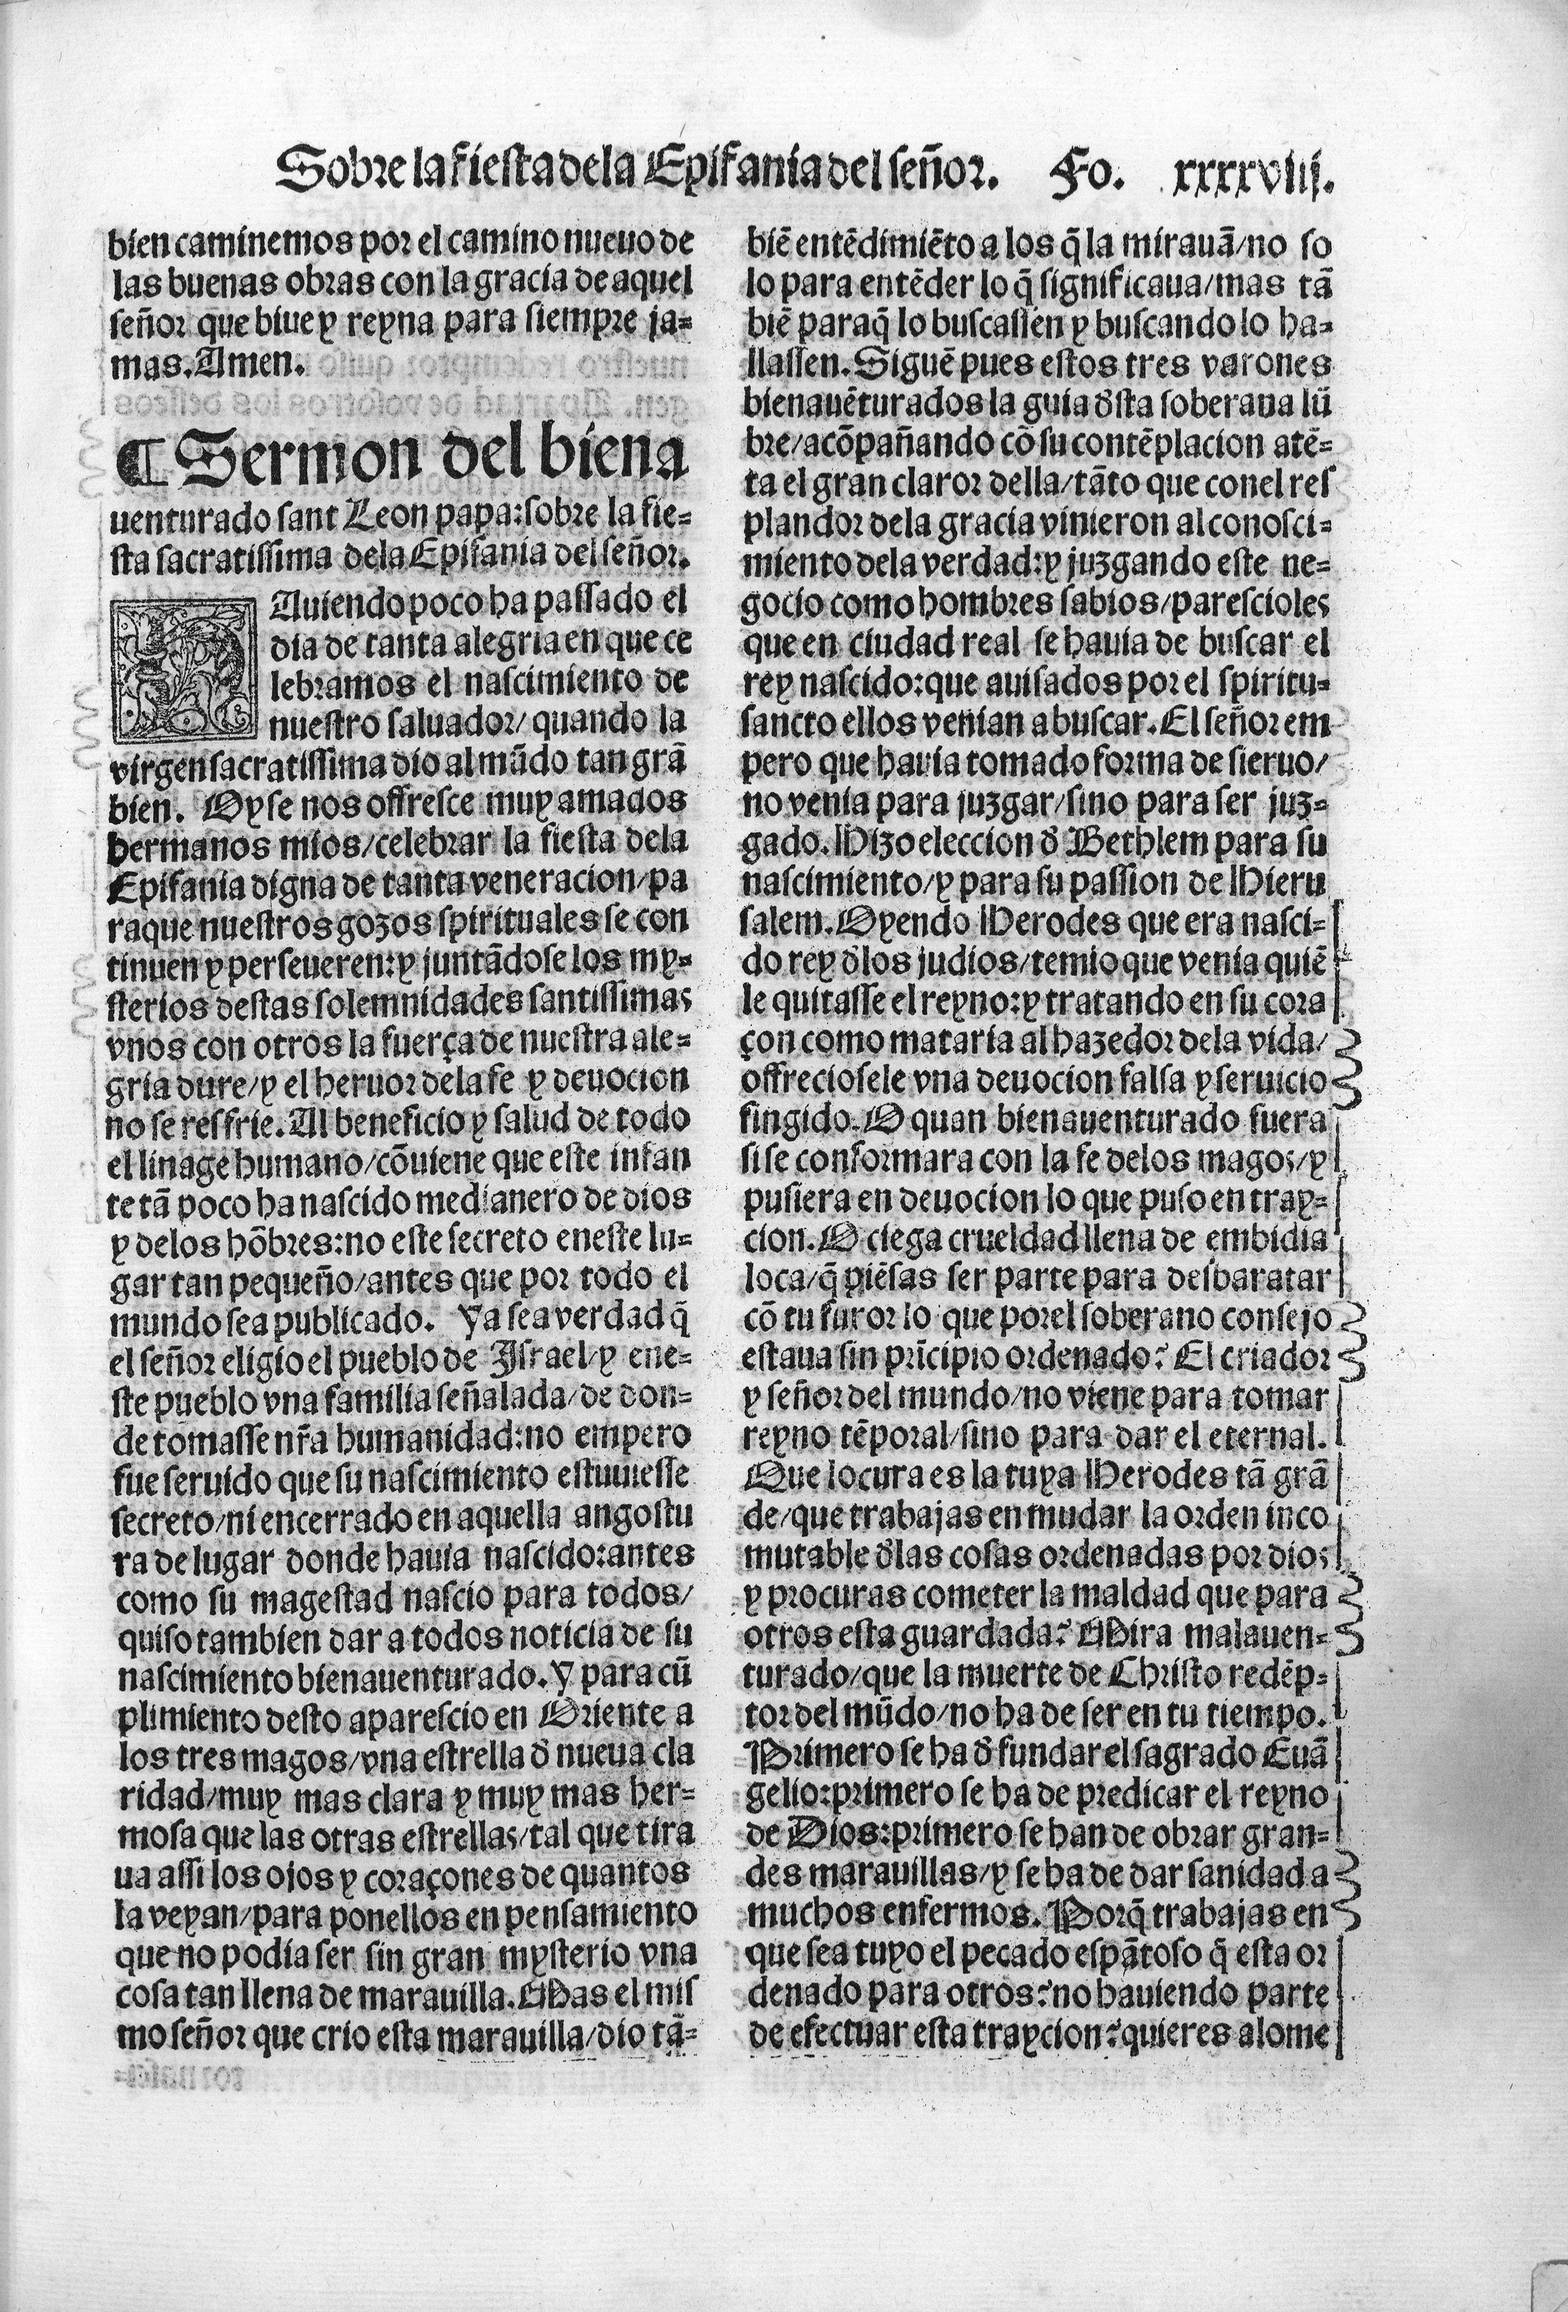 Sobre la fiesta dela Epifania del señor. Fo. xxxxviij.
bien caminemos por el camino nueuo de
las buenas obras con la gracia de aquel
señor que biue y reyna para siempre ja-
mas. Amen.
¶ Sermon del biena
uenturado sant Leon papa: sobre la fie-
sta sacratissima dela Epifania del señor.
HAuiendo poco ha passado el
dia de tanta alegria en que ce
lebramos el nascimiento de
nuestro saluador/ quando la
virgen sacratissima dio al mũdo tan grã
bien. Oy se nos offresce muy amados
hermanos mios/celebrar la fiesta dela
Epifania digna de tanta veneracion/pa
raque nuestros gozos spirituales se con
tinuen y perseueren: y juntãdose los my-
sterios destas solemnidades santissimas
vnos con otros la fuerça de nuestra ale-
gria dure/y el heruor dela fe y deuocion
no se resfrie. Al beneficio y salud de todo
el linage humano/cõuiene que este infan
te tã poco ha nascido medianero de dios
y delos hõbres: no este secreto eneste lu-
gar tan pequeño/antes que por todo el
mundo sea publicado. Ya sea verdad q̃
el señor eligio el pueblo de Israel/y ene-
ste pueblo vna familia señalada/de don-
de tomasse nr̃a humanidad: no empero
fue seruido que su nascimiento estuuiesse
secreto/ni encerrado en aquella angostu
ra de lugar donde hauia nascido: antes
como su magestad nascio para todos/
quiso tambien dar a todos noticia de su
nascimiento bienauenturado. Y para cũ
plimiento desto aparescio en Oriente a
los tres magos/vna estrella d̃ nueua cla
ridad/muy mas clara y muy mas her-
mosa que las otras estrellas/tal que tira
ua assi los ojos y coraçones de quantos
la veyan/para ponellos en pensamiento
que no podia ser sin gran mysterio vna
cosa tan llena de marauilla. Mas el mis
mo señor que crio esta marauilla/dio tã-
biẽ entẽdimiẽto a los q̃ la mirauã/no so
lo para entẽder lo q̃ significaua/mas tã
biẽ paraq̃ lo buscassen y buscando lo ha-
llassen. Siguẽ pues estos tres varones
bienauẽturados la guia d̃sta soberana lũ
bre/acõpañando cõ su contẽplacion atẽ-
ta el gran claror della/tãto que conel res
plandor dela gracia vinieron al conosci-
miento dela verdad: y juzgando este ne-
gocio como hombres sabios/paresciole s
que en ciudad real se hauia de buscar el
rey nascido: que auisados por el spiritu-
sancto ellos venian a buscar. El señor em
pero que hauia tomado forma de sieruo/
no venia para juzgar/sino para ser juz-
gado. Hizo eleccion d̃ Bethlem para su
nascimiento/y para su passion de Hieru
salem. Oyendo Herodes que era nasci-
do rey d̃los judios/temio que venia quiẽ
le quitasse el reyno: y tratando en su cora
çon como mataria al hazedor dela vida/
offreciosele vna deuocion falsa y seruicio
fingido. O quan bienauenturado fuera
si se conformara con la fe delos magos/y
pusiera en deuocion lo que puso en tray-
cion. O ciega crueldad llena de embidia
loca/q̃ piẽsas ser parte para desbaratar
cõ tu furor lo que porel soberano consejo
estaua sin prĩcipio ordenado? El criador
y señor del mundo/no viene para tomar
reyno tẽporal/sino para dar el eternal.
Que locura es la tuya Herodes tã grã
de/que trabajas en mudar la orden inco
mutable d̃las cosas ordenadas por dios
y procuras cometer la maldad que para
otros esta guardada? Mira malauen-
turado/que la muerte de Christo redẽp-
tor del mũdo/no ha de ser en tu tiempo.
Primero se ha d̃ fundar el sagrado Euã
gelio: primero se ha de predicar el reyno
de Dios: primero se han de obrar gran-
des marauillas/y se ha de dar sanidad a
muchos enfermos. Porq̃ trabajas en
que sea tuyo el pecado espãtoso q̃ esta or
denado para otros? no hauiendo parte
de efectuar esta traycion? quieres alome